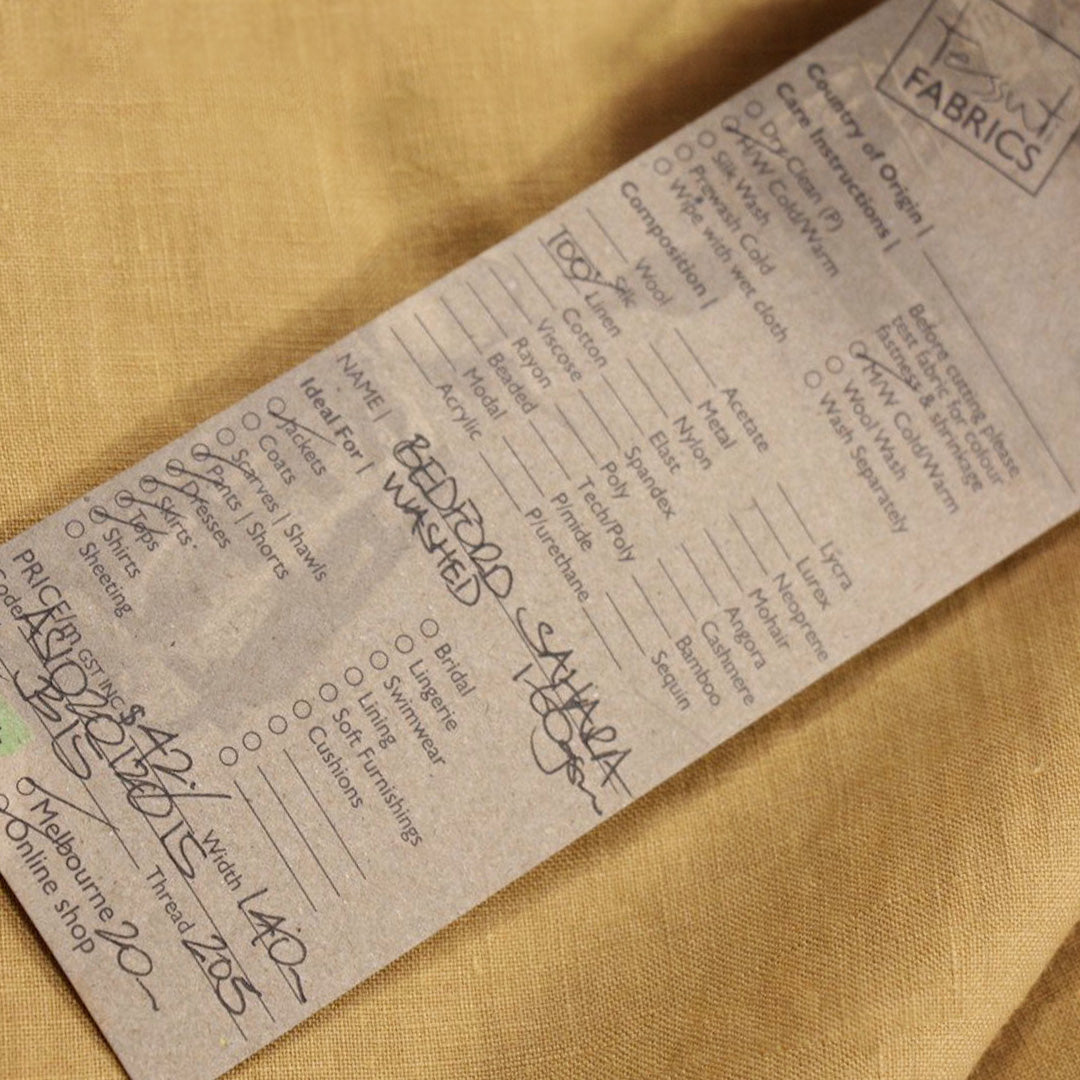 Tessuti
FABRICS
Country of Origin |
Care Instructions |
Dry Clean (P)
H/W Cold/Warm
Silk Wash
Prewash Cold
Wipe with wet cloth
Before cutting please
test fabric for colour
fastness & shrinkage
M/W Cold/Warm
Wool Wash
Wash Separately
Composition |
Wool
Silk
100% Linen
Cotton
Viscose
Rayon
Beaded
Modal
Acrylic
Acetate
Metal
Nylon
Elast
Spandex
Poly
Tech/Poly
P/mide
P/urethane
Lycra
Lurex
Neoprene
Mohair
Angora
Cashmere
Bamboo
Sequin
NAME | BEDFORD SAHARA
WASHED 160gsm
Ideal For |
Jackets
Coats
Scarves | Shawls
Pants | Shorts
Dresses
Skirts
Tops
Shirts
Sheeting
Bridal
Lingerie
Swimwear
Lining
Soft Furnishings
Cushions
PRICE/m GST INC $42./ Width 140
Thread 205
Melbourne 20
Online shop